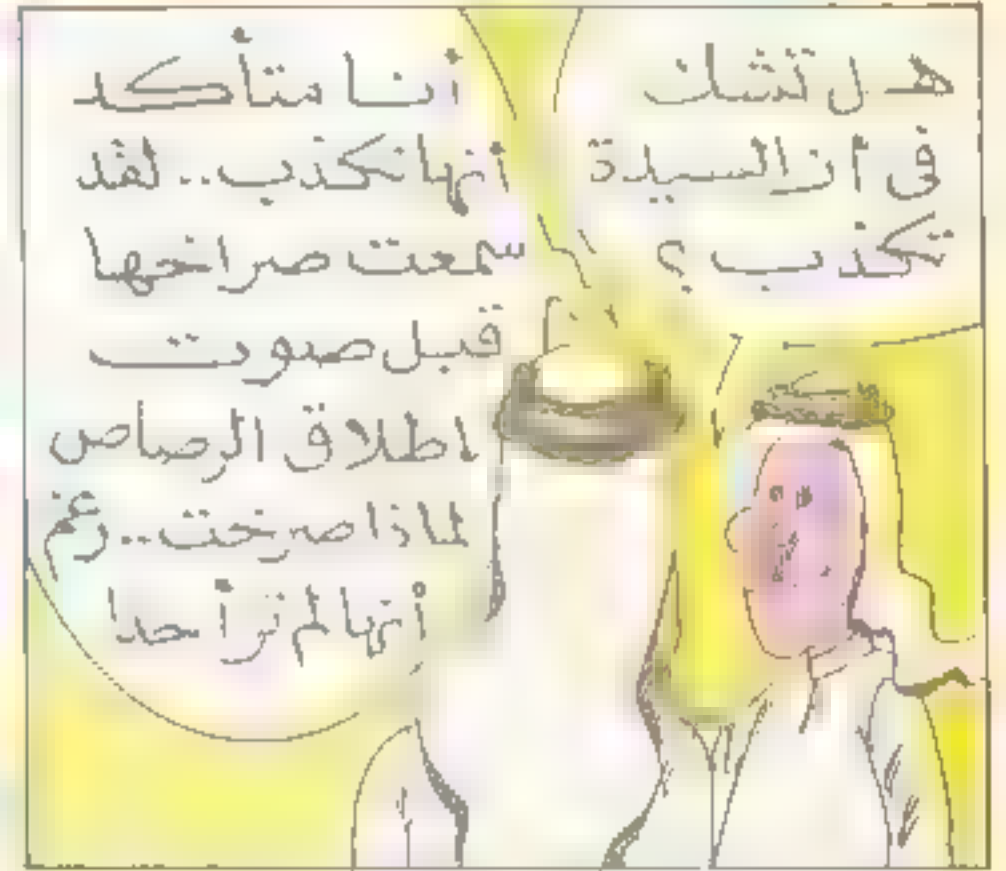 هل تشك
فى أن السيدة
تكذب ؟
أنا متأكد
أنها تكذب .. لقد
سمعت صراخها
قبل صوت
اطلاق الرصاص
لماذا صرخت .. رغم
أنها لم تر أحدا